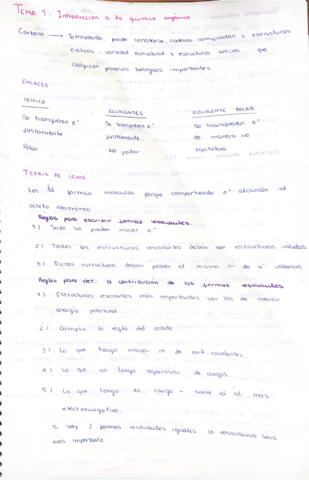 TEMA 1: Introducción a la química orgánica.
Carbono → Tetravalente, puede concatenarse, cadenas complicadas y estructuras
cíclicas, variedad estructural y estructuras únicas que
codifican procesos biológicos importantes
ENLACES
IONICO
COVALENTES
COVALENTE POLAR
Se transfieren e⁻
Se transfieren e⁻
Se transfieren e⁻
Justamente
Justamente.
de manera no
equitativa
Polar
No polar
TEORIA DE LEWIS
Los forman moléculas porque compartiendo e⁻ alcanzan el
octeto electrónico
Reglas para escribir formas resonantes.
1) Solo se pueden mover e⁻
2) Todas las estructuras resonantes deben ser estructuras validas
3) Dichas estructuras deben poseer el mismo nº de e⁻ valencia
Reglas para det. la contribución de las formas resonantes
1) Estructuras resonantes más importantes son las de menor
energía potencial.
2) Cumplir la regla del octeto
3) La que tenga mayor nº de enl. covalentes.
4) La que no tenga separación de cargas
5) La que tenga la carga - sobre el át. más
electronegativo.
Si hay 2 formas resonantes iguales la resonancia será
más importante